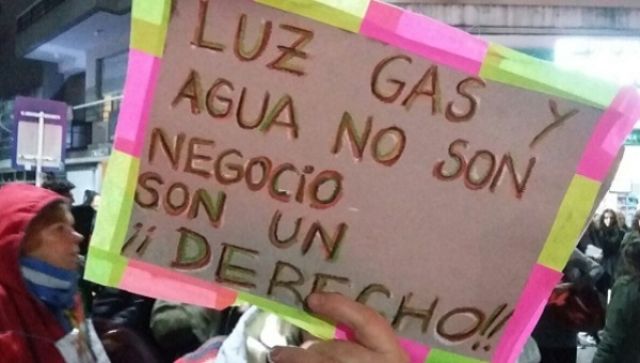 LUZ GAS Y
AGUA NO SON
NEGOCIO
SON UN
¡¡DERECHO!!